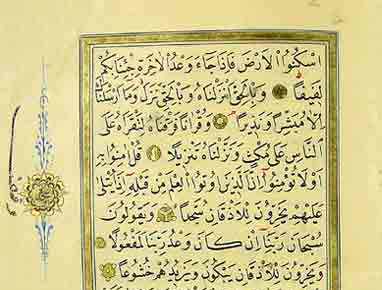 اسْكُنُوا الْاَرْضَ فَاِذَا جَاءَ وَعْدُ الْاٰخِرَةِ جِئْنَا بِكُمْ
لَفِيفًا وَبِالْحَقِّ اَنْزَلْنَاهُ وَبِالْحَقِّ نَزَلَ وَمَا اَرْسَلْنَاكَ
اِلَّا مُبَشِّرًا وَنَذِيرًا وَقُرْاٰنًا فَرَقْنَاهُ لِتَقْرَاَهُ عَلَى
النَّاسِ عَلٰى مُكْثٍ وَنَزَّلْنَاهُ تَنْزِيلًا قُلْ اٰمِنُوا بِهِ
اَوْ لَا تُؤْمِنُوا اِنَّ الَّذِينَ اُوتُوا الْعِلْمَ مِنْ قَبْلِهِ اِذَا يُتْلٰى
عَلَيْهِمْ يَخِرُّونَ لِلْاَذْقَانِ سُجَّدًا وَيَقُولُونَ
سُبْحَانَ رَبِّنَا اِنْ كَانَ وَعْدُ رَبِّنَا لَمَفْعُولًا
وَيَخِرُّونَ لِلْاَذْقَانِ يَبْكُونَ وَيَزِيدُهُمْ خُشُوعًا